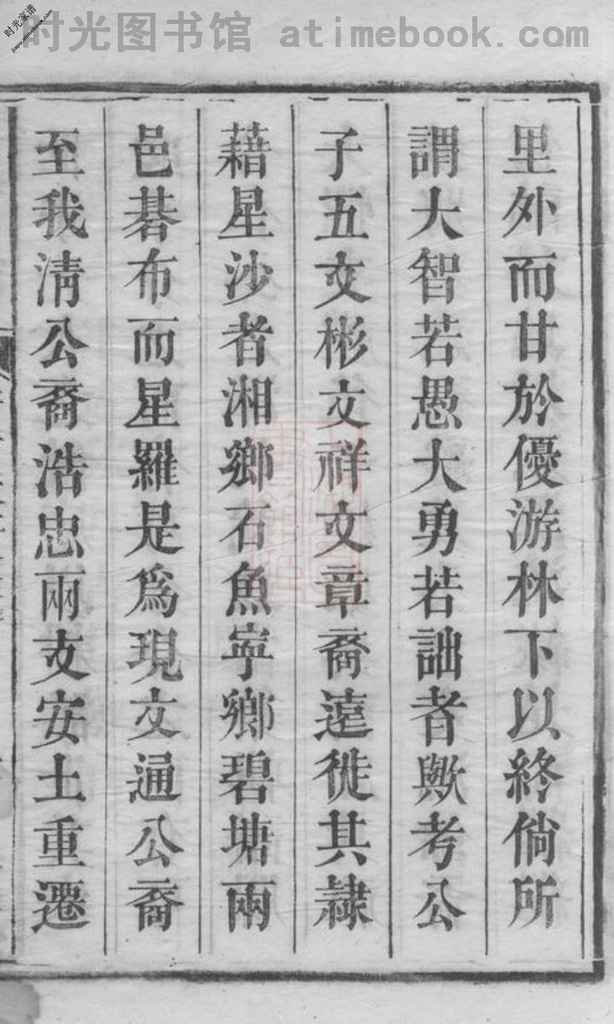 时光图书馆 atimebook.com
里外而甘於優游林下以終倘所
謂大智若愚大勇若詘者歟考公
子五文彬文祥文章裔遠徙其隷
藉星沙者湘鄉石魚寧鄉碧塘兩
邑碁布而星羅是爲現文通公裔
至我淸公裔浩忠兩支安土重遷